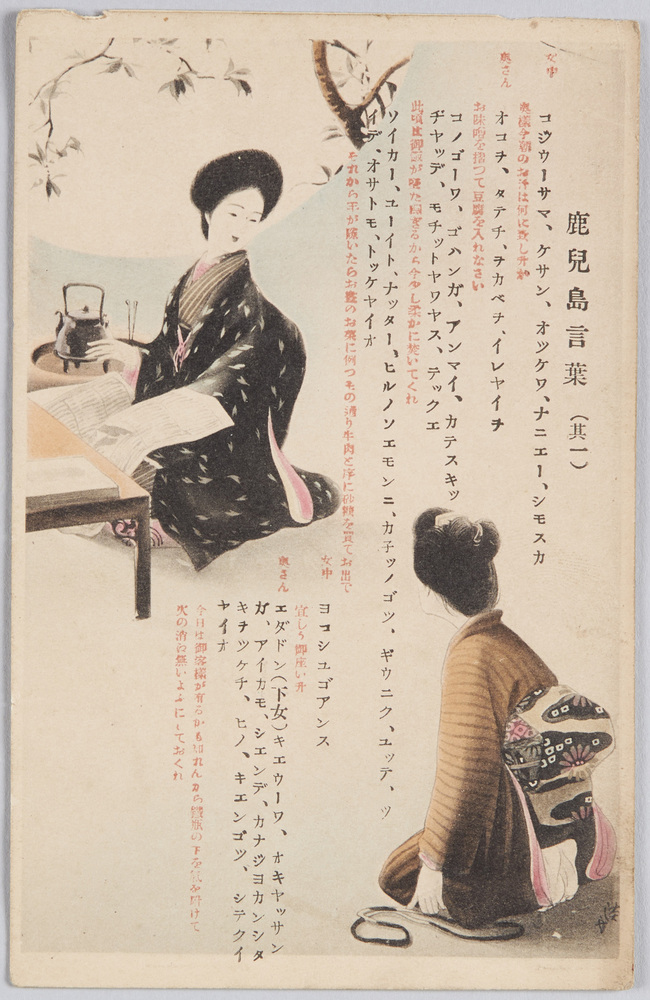 鹿兒島言葉（其一）
女中
コジウーサマ、ケサン、オツケワ、ナニエー、シモスカ
奥様今朝のお汁は何に致し升か
奥さん
オコチ、タテチ、ヲカベチ、イレヤイチ
お味噌を摺つて豆腐を入れなさい
コノゴーワ、ゴハンガ、アンマイ、カテスキッ
ヂヤッデ、モチットヤワヤス、テックエ
此頃は御飯が
から今少し柔かに焚いてくれ
ソイカー、ユーイト、ナッター、ヒルノソエモンニ、カ子ツノゴツ、ギウニク、ユッテ、ツ
デ、オサトモ、トッケヤイオ
それから手が隙いたらお晝のお菜に何つもの通り牛肉と序に砂糖を買てお出で
女中
ヨコシユゴアンス
宜しう御座い升
奥さん
エダドン（下女）キエウーワ、オキヤッサン
ガ、アイカモ、シエンデ、カナジヨカンシタ
キチツケチ、ヒノ、キエンゴツ、シテクイ
ヤイオ
今日は御客様が有るかも知れんから鐵瓶の下を氣を附けて
火の消ら無いよふにしておくれ